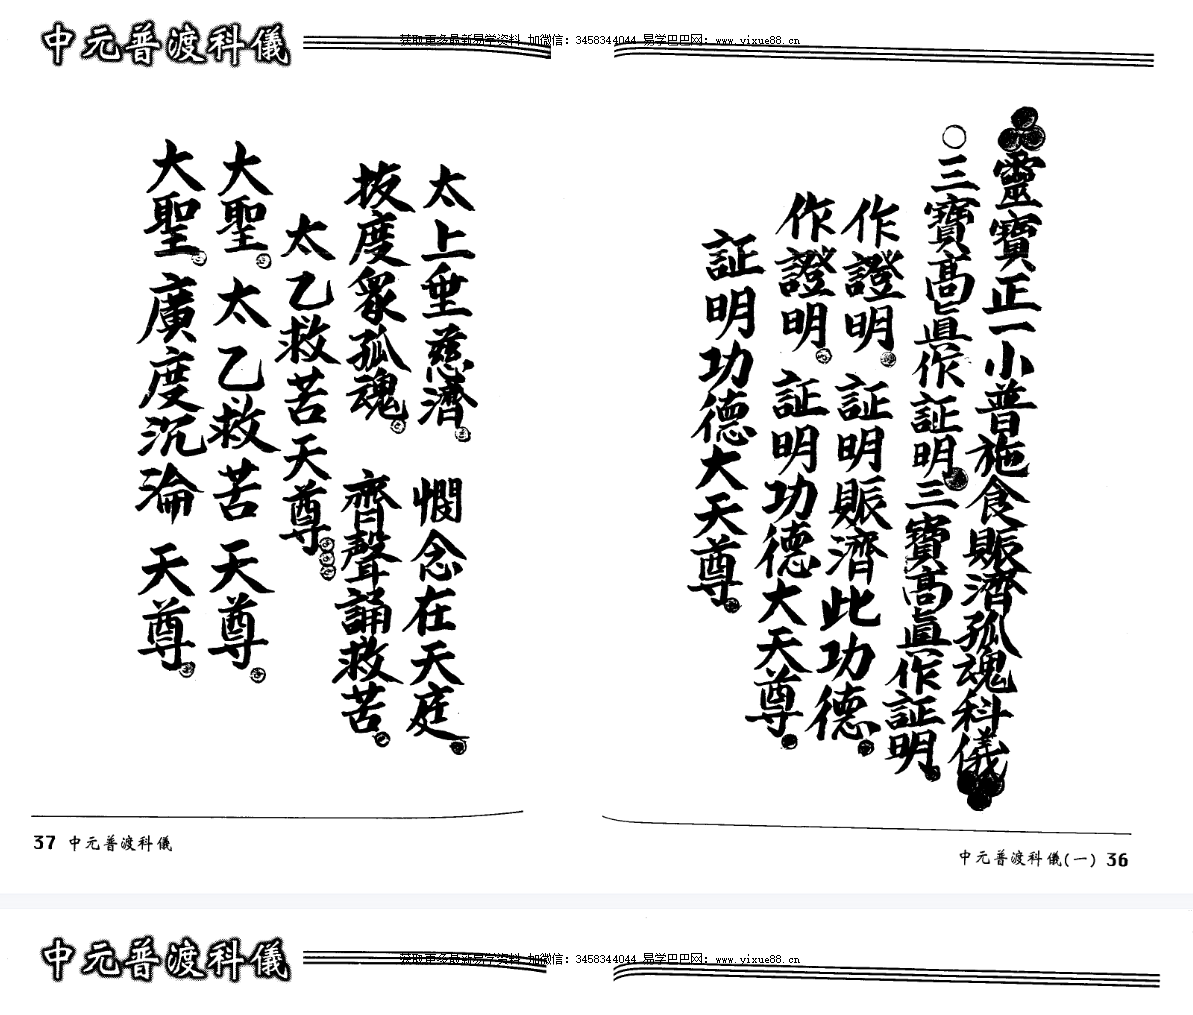 中元普渡科儀
获取更多最新易学资料 加微信：3458344044 易学巴巴网：www.yixue88.cn
靈寶正一小普施食賑濟孤魂科儀
三寶高眞作証明三寶高眞作証明
作證明 証明賑濟此功德
作證明 証明功德大天尊
証明功德大天尊
中元普渡科儀(一) 36
太上垂慈濟 憫念在天庭
拔度衆孤魂 齊聲誦救苦
太乙救苦天尊
大聖 太乙救苦天尊
大聖 廣度沉淪天尊
37 中元普渡科儀
中元普渡科儀
获取更多最新易学资料 加微信：3458344044 易学巴巴网：www.yixue88.cn